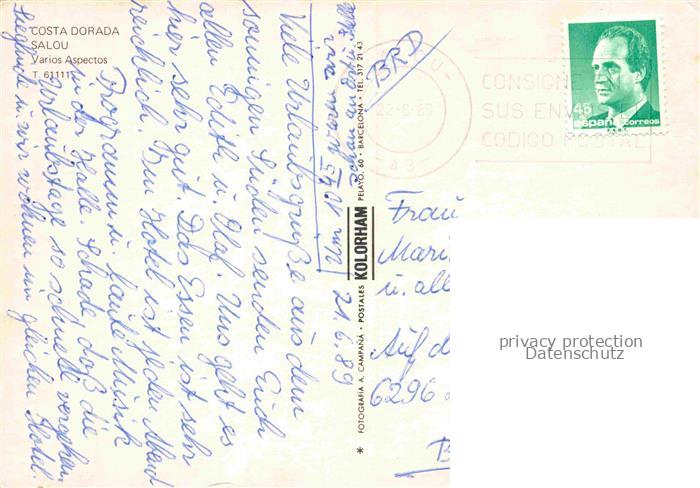 COSTA DORADA
SALOU
Varios Aspectos
T. 61111
21.6.89
Viele Urlaubsgrüße aus dem
sonnigen Süden senden Euch
allen Edith u. Olaf. Uns geht es
hier sehr gut. Das Essen ist sehr
reichlich. Im Hotel ist jeden Abend
Programm u. laute Musik
in der Halle. Schade daß die
Urlaubstage so schnell vergehen.
u. wir wohnen im gleichen Hotel.
* FOTOGRAFIA A. CAMPAÑA • POSTALES KOLORHAM PELAYO, 60 • BARCELONA • TEL. 317 21 43
BRD
CONSIGNE
SUS ENV
CODIGO POSTAL
48
españa correos
Frau
Mari
u. all
Auf d
6296
B
privacy protection
Datenschutz